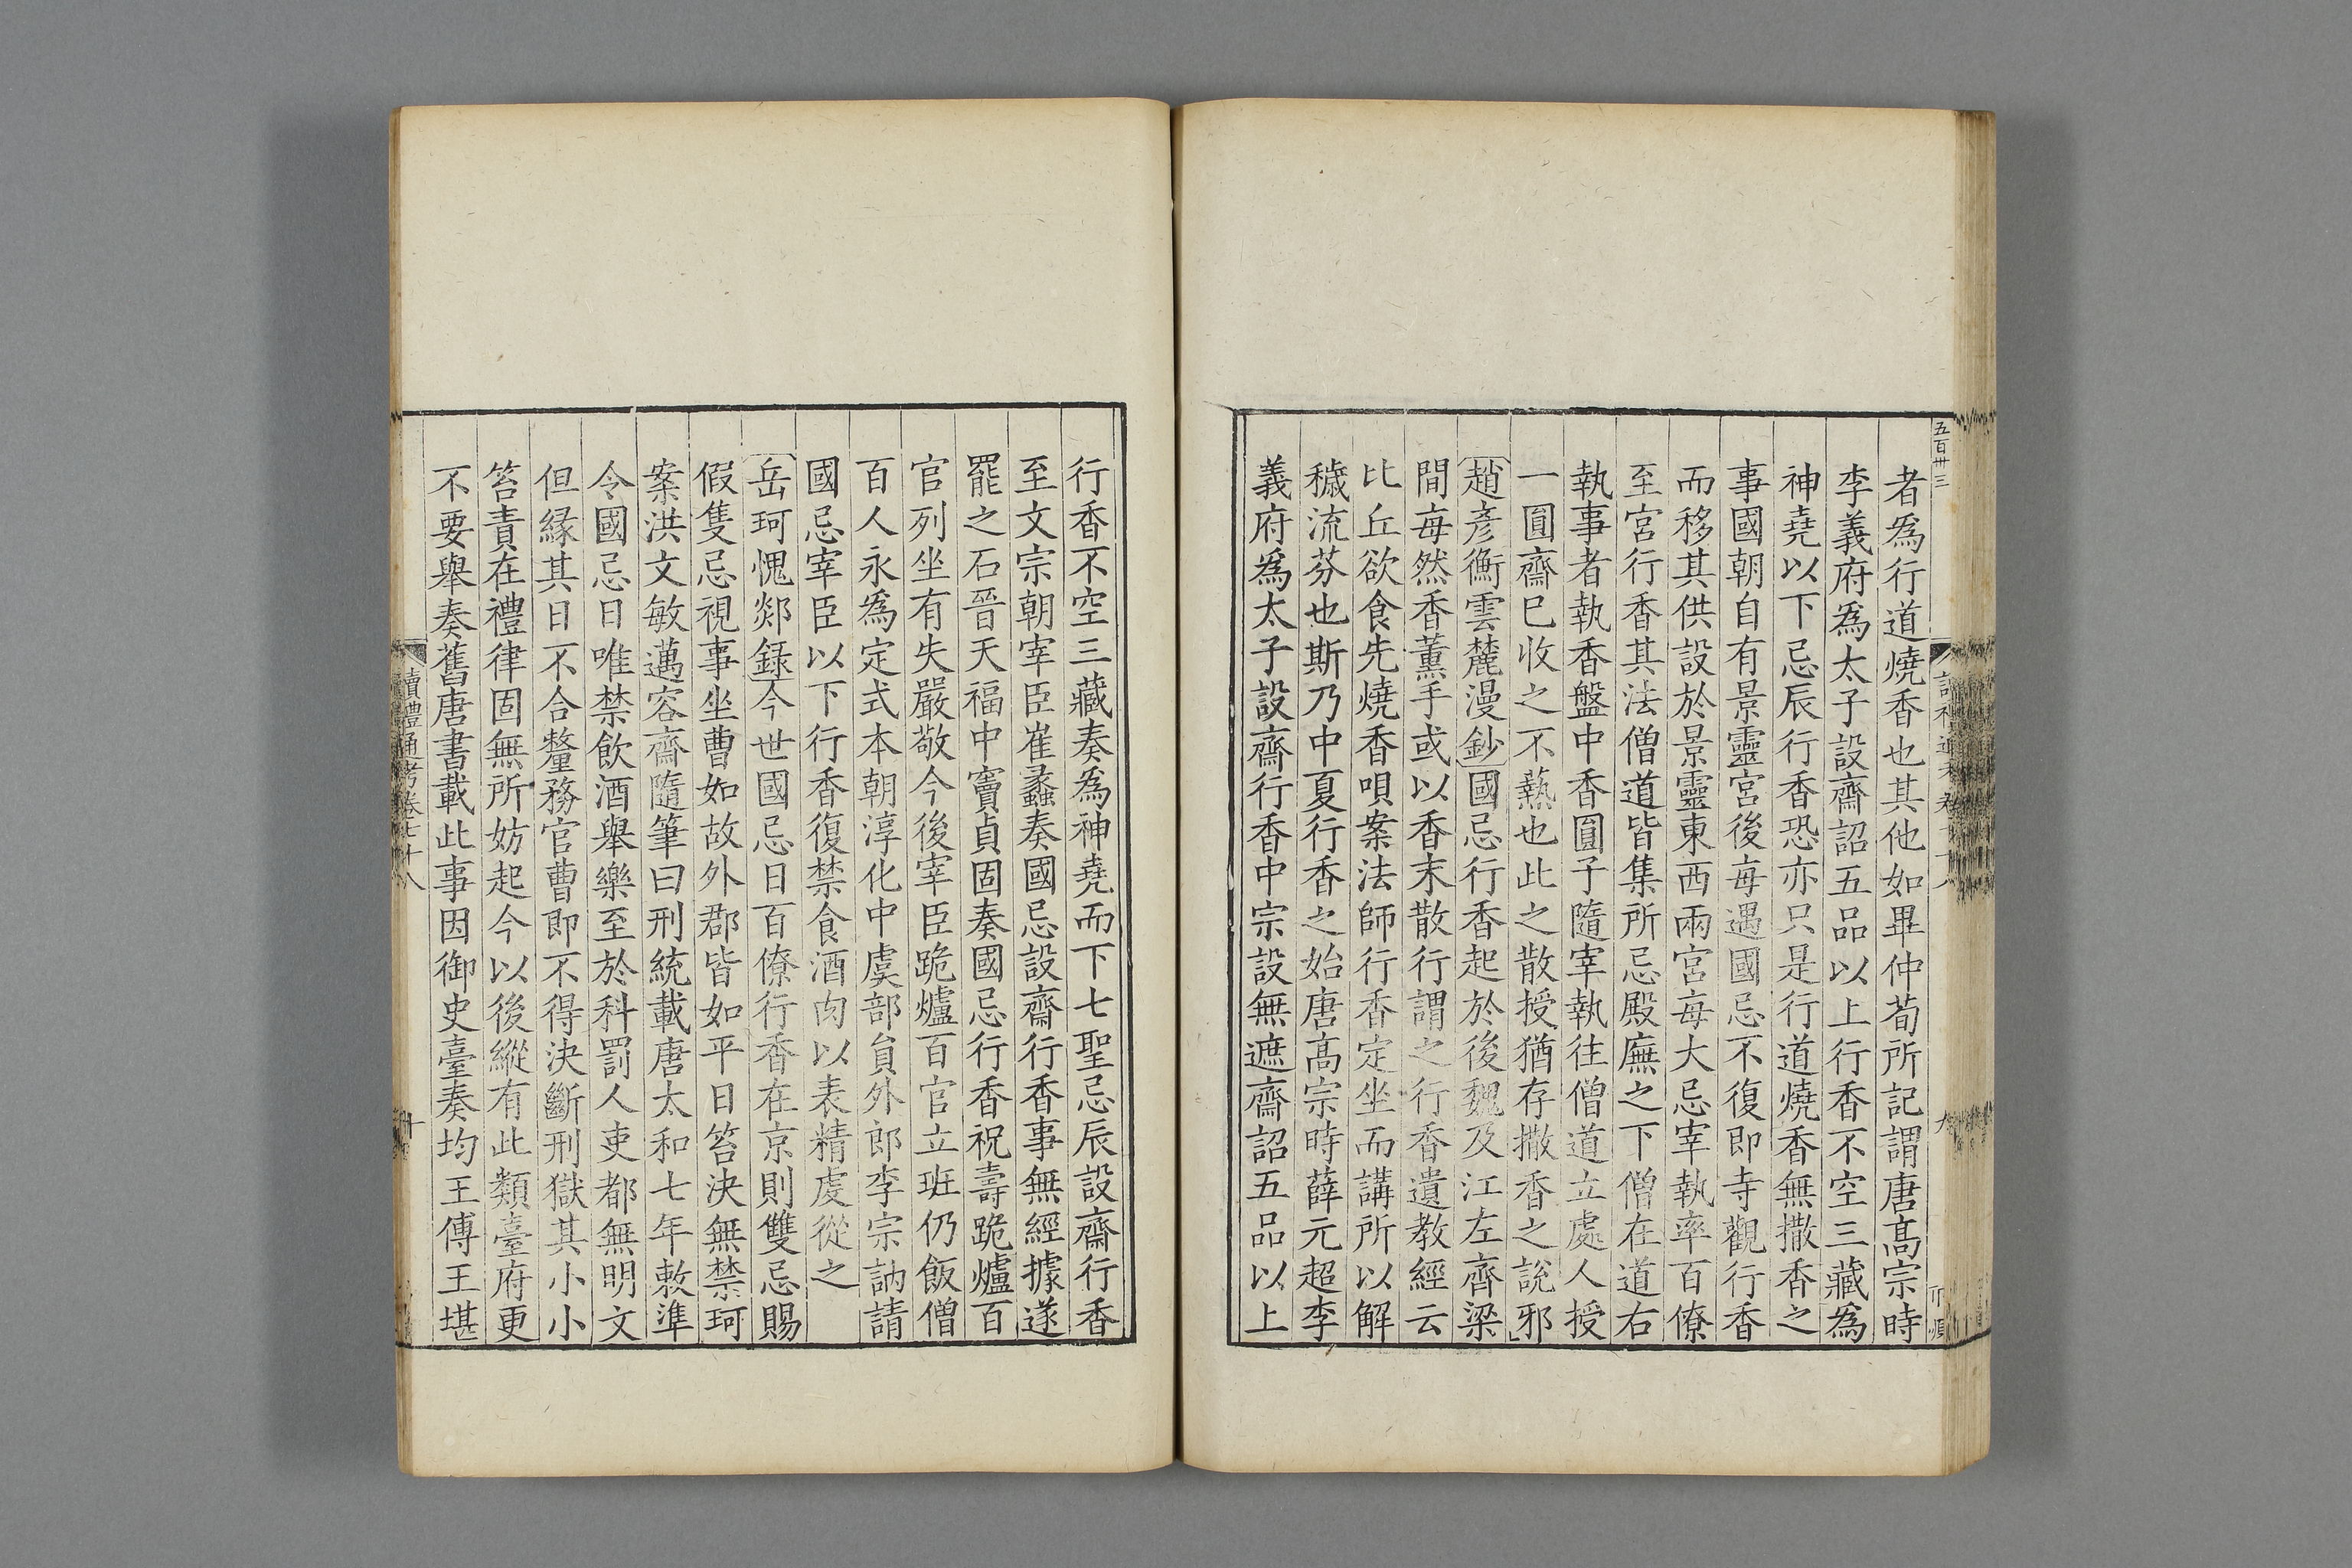 五百卅三
者爲行道燒香也其他如畢仲荀所記謂唐高宗時
李義府爲太子設齋詔五品以上行香不空三藏爲
神堯以下忌辰行香恐亦只是行道燒香無撒香之
事國朝自有景靈宮後每遇國忌不復卽寺觀行香
而移其供設於景靈東西兩宮每大忌宰執率百僚
至宮行香其法僧道皆集所忌殿廡之下僧在道右
執事者執香盤中香圓子隨宰執往僧道立處人授
一圓齋已收之不爇也此之散授猶存撒香之說邪
趙彥衞雲麓漫鈔國忌行香起於後魏及江左齊梁
間每然香薰手或以香末散行謂之行香遺教經云
比丘欲食先燒香唄案法師行香定坐而講所以解
穢流芬也斯乃中夏行香之始唐高宗時薛元超李
義府爲太子設齋行香中宗設無遮齋詔五品以上
行香不空三藏奏爲神堯而下七聖忌辰設齋行香
至文宗朝宰臣崔蠡奏國忌設齋行香事無經據遂
罷之石晉天福中竇貞固奏國忌行香祝壽跪爐百
官列坐有失嚴敬今後宰臣跪爐百官立班仍飯僧
百人永爲定式本朝淳化中虞部員外郎李宗訥請
國忌宰臣以下行香復禁食酒肉以表精虔從之
岳珂愧郯錄今世國忌日百僚行香在京則雙忌賜
假隻忌視事坐曹如故外郡皆如平日笞決無禁珂
案洪文敏邁容齋隨筆曰刑統載唐太和七年敕準
令國忌日唯禁飲酒舉樂至於科罰人吏都無明文
但緣其日不合釐務官曹卽不得決斷刑獄其小小
笞責在禮律固無所妨起今以後縱有此類臺府更
不要舉奏舊唐書載此事因御史臺奏均王傅王堪
讀禮通考卷七十八
十